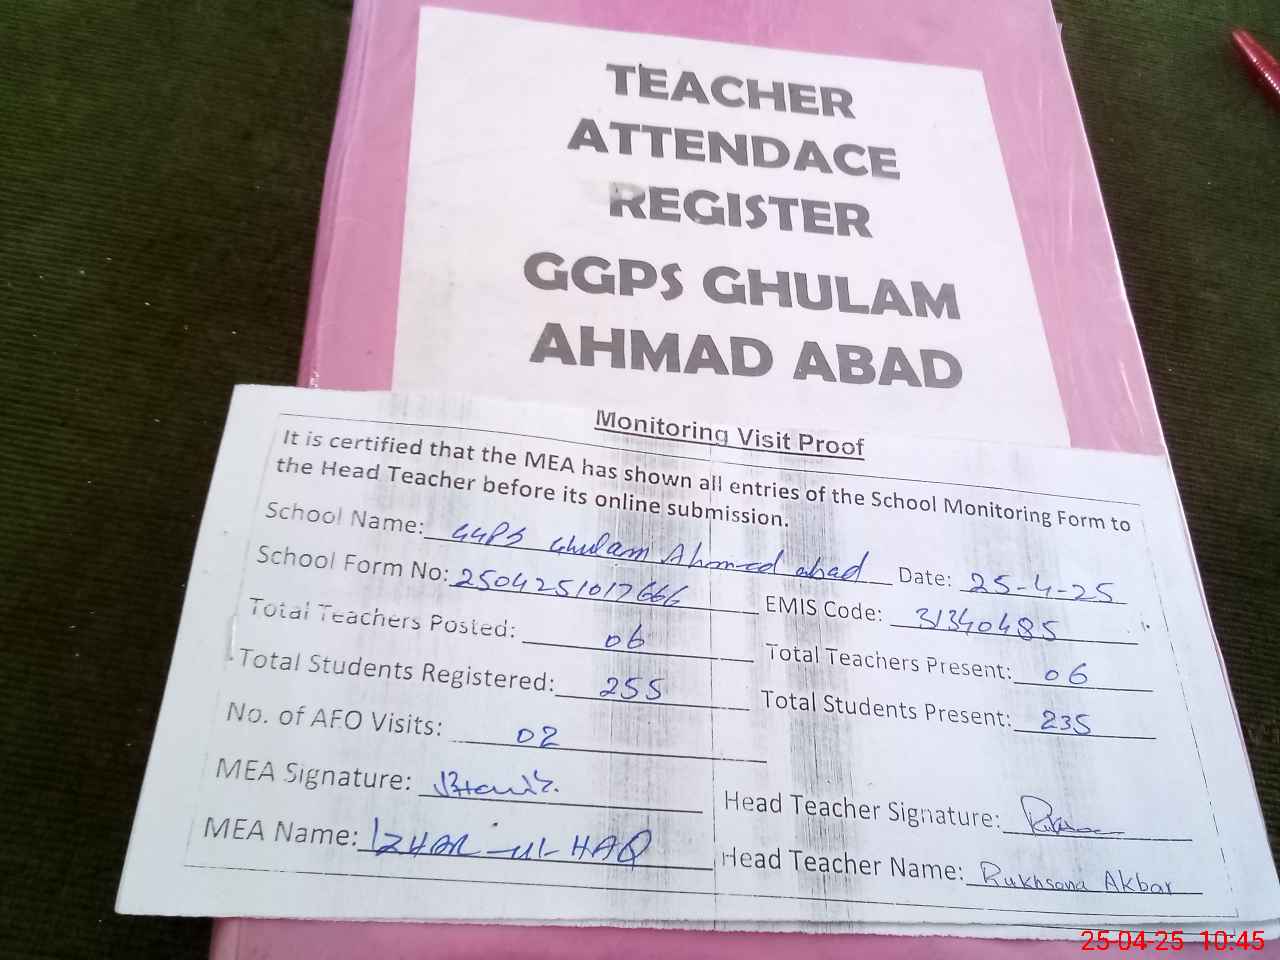 TEACHER
ATTENDACE
REGISTER
GGPS GHULAM
AHMAD ABAD
Monitoring Visit Proof
It is certified that the MEA has shown all entries of the School Monitoring Form to
the Head Teacher before its online submission.
School Name: GGPS Ghulam Ahmed abad Date: 25-4-25
School Form No: 2504251017666 EMIS Code: 31340485
Total Teachers Posted: 06 Total Teachers Present: 06
Total Students Registered: 255 Total Students Present: 235
No. of AFO Visits: 02
MEA Signature: Head Teacher Signature:
MEA Name: IZHAR-ul-HAQ Head Teacher Name: Rukhsana Akbar
25-04-25 10:45